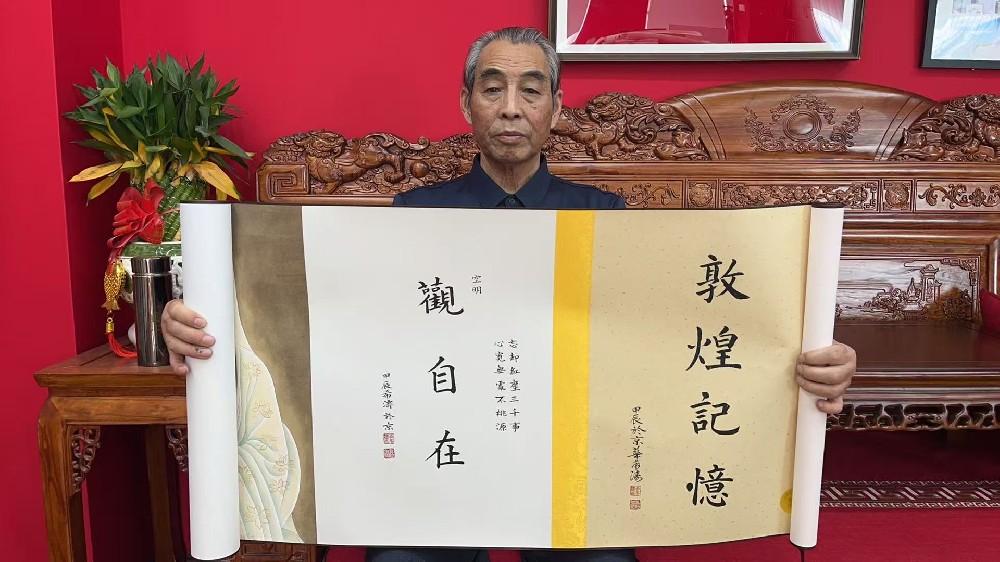 敦煌記憶
甲辰於京華希濤
空明
忘却紅塵三千事
心寬無處不桃源
觀自在
甲辰希濤於京